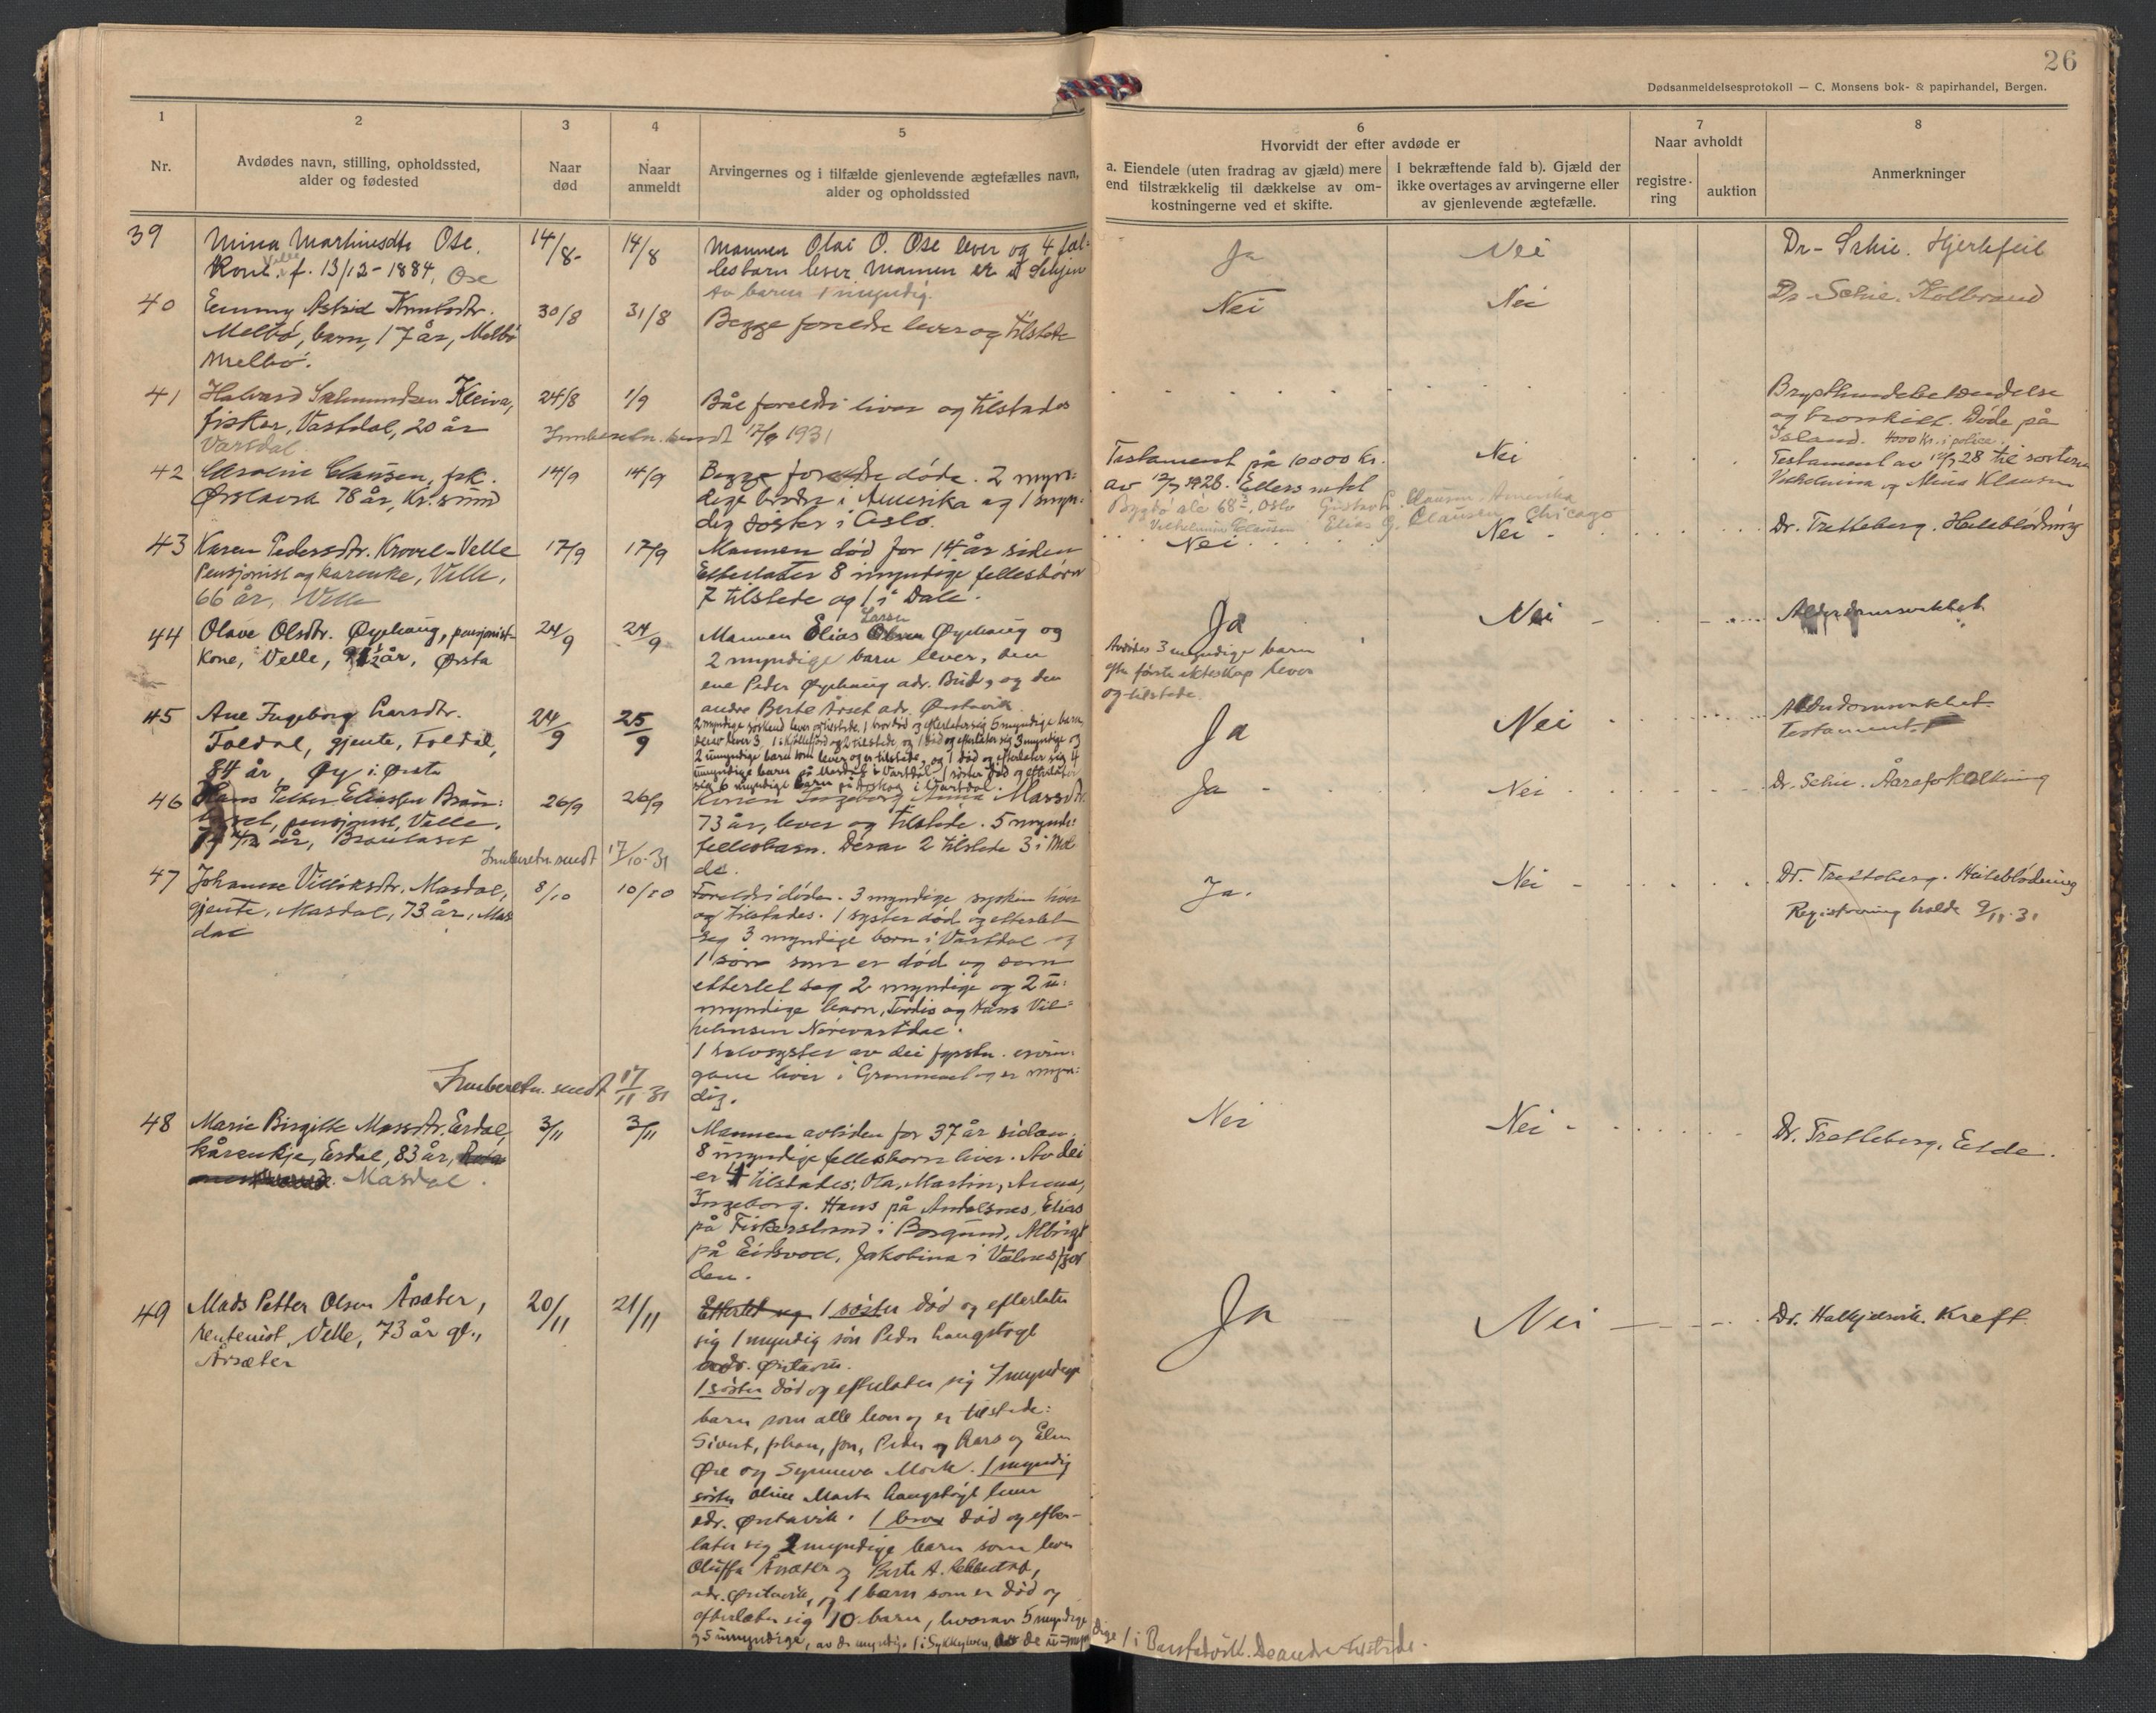 26
Dødsanmeldelsesprotokoll — C. Monsens bok- & papirhandel, Bergen.
1
Nr.
2
Avdødes navn, stilling, opholdssted,
alder og fødested
3
Naar
død
4
Naar
anmeldt
5
Arvingernes og i tilfælde gjenlevende ægtefælles navn,
alder og opholdssted
6
Hvorvidt der efter avdøde er
a. Eiendele (uten fradrag av gjæld) mere
end tilstrækkelig til dækkelse av om-
kostningerne ved et skifte.
I bekræftende fald b). Gjæld der
ikke overtages av arvingerne eller
av gjenlevende ægtefælle.
7
Naar avholdt
registre-
ring
auktion
8
Anmerkninger
39
Mina Martinusdtr Ose.
Velle
Kone. f. 13/12-1884. Ose
14/8-
14/8
Mannen Olai O. Ose lever og 4 fæl-
lesbarn lever Mannen er
Av barna 1 myndig.
Ja
Nei
Dr. Schie. Hjertefeil
40
Emmy Astrid Knutsdtr.
Melbø, barn, 17 år, Melbø
Melbø.
30/8
31/8
Begge foreldre lever og tilstede
Nei
Nei
Dr Schie. Kolbrand
41
Halvard Salmundsen Kleiva,
fisker, Vartdal, 20 år
Vartdal
24/8
1/9
Båe foreldri liver og tilstades
Innberetn. sendt 17/9 1931
Brysthindebetændelse
og bronkitt. Døde på
Island. 4000 kr. i police.
42
Caroline Clausen, frk.
Ørstavik 78 år, Kr.sund
14/9
14/9
Begge foreldre døde. 2 myn-
dige brødre i Amerika og 1 myn-
dig søster i Oslo.
Testament på 10000 Kr.
av 12/7 1928. Ellers intet
Bygdø ale 68, Oslo Gustav C. Clausen Amerika
Vilhelmine Clausen Elias G. Clausen Chicago
Nei
Testament av 12/7 28 til søstrene
Vilhelmina og Mina Klausen
43
Karen Pedersdtr. Krovel-Velle
Pensjonist og kårenke, Velle,
66 år, Velle
17/9
17/9
Mannen død for 14 år siden
Etterlater 8 myndige fellesbørn
7 tilstede og 1 i Dale.
Nei
Nei
Dr. Tretteberg. Heileblødning
44
Olave Olsdtr. Øyehaug, pensjonist-
kone, Velle, år, Ørsta
24/9
24/9
Larsen
Mannen Elias Olsen Øyehaug og
2 myndige barn lever, den
ene Peder Øyehaug adr. Brid, og den
andre Berte Årset adr. Ørstavik
Ja
Avdødes 3 myndige barn
efter første ekteskap lever
og tilstede.
Nei
Alderdomsvakhet
45
Ane Ingeborg Larsdtr.
Foldal, gjente, Foldal,
84 år, Øy i Ørsta
24/9
25/9
2 myndige søskend lever og tilstede, 1 bror død og efterlater sig 5 myndige barn,
derav lever 3, 1 i Kjøllefjord og 2 tilstede, og 1 død og efterlater sig 3 myndige og
2 umyndige barn som lever og er tilstede, og 1 død og efterlater sig 4
umyndige barn på Masdal i Vartdal. 1 søster død og efterlater
sig 6 myndige barn på Årskog i Vartdal.
Ja
Nei
Alderdomsvakhet.
Testament.
46
Hans Petter Eliassen Brau-
taset, pensjonist, Velle,
år, Brautaset
26/9
26/9
Konen Ingeborg Anna Massdtr.
73 år, lever og tilstede. 5 myndi-
fellesbarn. Derav 2 tilstede 3 i Mol-
de.
Innberetn. sendt 17/10-31
Ja
Nei
Dr. Schie. Åreforkalkning
47
Johanne Villiksdtr. Masdal,
gjente, Masdal, 73 år, Mas
dal
8/10
10/10
Foreldri døde. 3 myndige sysken liver
og tilstades. 1 syster død og etterlet
seg 3 myndige born i Vartdal og
1 son som er død og som
etterlet seg 2 myndige og 2 u-
myndige born, Tordis og Hans Vil-
helmsen Nørevartdal.
1 halvsyster av dei fyrstn. ervin-
gane liver i og er myn-
dig.
Innberetn. sendt 17/11-31
Ja.
Nei
Dr. Tretteberg. Heileblødning
Registrering holdt 9/11-31
48
Marie Birgitte Massdtr. Erdal,
kårenkje, Erdal, 83 år,
Masdal.
3/11
3/11
Mannen avliden for 37 år sidan.
8 myndige fellesborn liver. Av dei
er 4 tilstades: Ola, Martin, Anna,
Ingeborg. Hans på Andalsnes, Elias
på Fiskerstrand i Borgund, Albrigt
på Eidsvoll, Jakobina i Valnesfjor
den.
Nei
Nei
Dr. Tretteberg. Elde.
49
Mads Petter Olsen Åsæter,
rentenist, Velle, 73 år gl.,
Årsæter
20/11
21/11
Etterlet seg 1 søster død og efterlater
sig 1 myndig søn Peder Langstøyl
adr. Ørstavik.
1 søster død og efterlater sig 7 myndige
barn som alle lever og er tilstede:
Sivert, Johan, Jon, Peder og Lars og Elen
Øye og Synneva Mork. 1 myndig
søster Oline Marta Langstøyl lever
adr. Ørstavik. 1 bror død og efter-
later sig 2 myndige barn som lever
Oluffa Åsæter og Berte A.
adr. Ørstavik, og 1 barn som er død og
efterlater sig 10 barn, hvorav 5 myndige
og 5 umyndige, av de myndige 1 i Sykkylven, av de u-myndige 1 i Barstadvik. De andre tilstede.
Ja
Nei
Dr. Halkjelsvik. Kreft